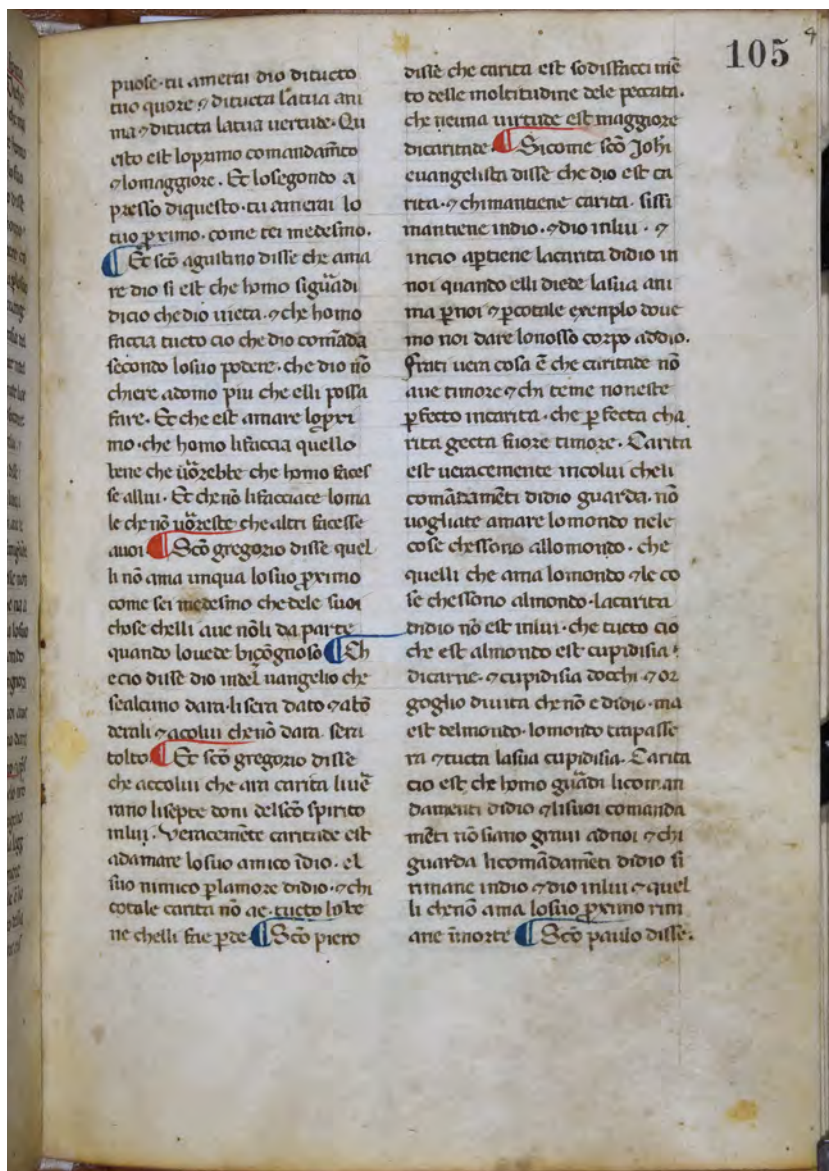 105
puose·tu amerai dio ditucto
tuo quore ⁊ ditucta latua ani
ma ⁊ ditucta latua uertude·Qu
esto est loprimo comandam̄to
⁊ lomaggiore. Et losegondo a
presso diquesto·tu amerai lo
tuo ꝓximo·come tei medesmo.
¶ Et sc̄o agustino disse che ama
re dio si est che homo si guādi
dicio che dio uieta·⁊ che homo
faccia tucto cio che dio comāda
secondo losuo podere·che dio nō
chiere adomo piu che elli possa
fare·Et che est amare lopri
mo·che homo lifaccia quello
bene che uōrebbe che homo faces
se allui·Et che nō lifacciate loma
le che nō uōreste che altri facesse
auoi ¶ Sc̄o gregorio disse quel
li nō ama unqua losuo ꝓximo
come sei medesmo che dele suoi
chose chelli aue nōli da parte
quando louede bisōgnoso ¶ Ch
ecio disse dio indel uangelio che
sealcuno dara·li sera dato ⁊ abō
derali ⁊ acolui che nō dara sera
tolto ¶ Et sc̄o gregorio disse
che accolui che ara carita liuē
rano lisepte doni delsc̄o spirito
inlui·Veracemēte caritade est
adamare losuo amico īdio·el
suo nimico ꝑlamore didio·⁊ chi
cotale carita nō ae·tucto lobe
ne chelli fae ꝑde ¶ Sc̄o piero
disse che carita est sodisfacci mē
to delle moltitudine dele peccata·
che neuna uirtude est maggiore
dicaritade ¶ Sicome sc̄o Johī
euangelista disse che dio est ca
rita·⁊ chi mantiene carita·sissi
mantiene indio·⁊ dio inlui·⁊
incio aꝑtiene lacarita didio in
noi quando elli diede lasua ani
ma ꝑnoi ⁊ ꝑcotale exenplo doue
mo noi dare lonosso corpo addio.
Frati uera cosa ē che caritade nō
aue timore ⁊ chi teme noneste
ꝑfecto incarita·che ꝑfecta cha
rita gecta fuore timore·Carita
est ueracemente incolui cheli
comādamēti didio guarda·nō
uogliate amare lomondo nele
cose chessono allomondo·che
quelli che ama lomondo ⁊ le co
se chessono almondo·lacarita
didio nō est inlui·che tucto cio
che est almondo est cupidisia
dicarne·⁊ cupidisia docchi ⁊ or
goglio diuita che nō e didio·ma
est delmondo·lomondo trapasse
ra ⁊ tucta lasua cupidisia·Carita
cio est che homo guādi licoman
damenti didio ⁊ lisuoi comanda
mēti nō siano graui adnoi ⁊ chi
guarda licomādamēti didio si
rimane indio ⁊ dio inlui ⁊ quel
li che nō ama losuo ꝓximo rim
ane īmorte ¶ Sc̄o paulo disse·